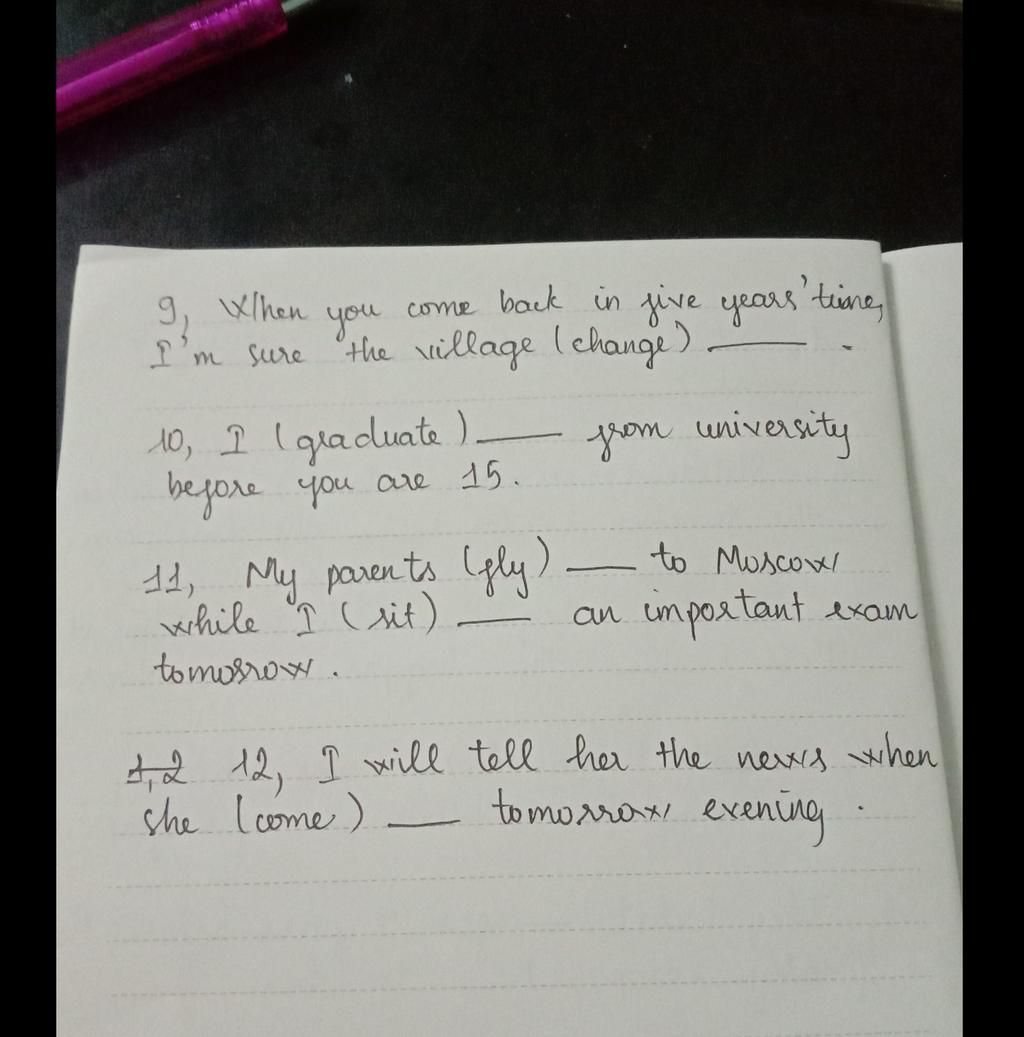 9, When you come back in five years' time,
I'm sure the village (change) ——— .
10, I (graduate) ——— from university
before you are 15.
11, My parents (fly) ——— to Moscow
while I (sit) ——— an important exam
tomorrow.
1,2 12, I will tell her the news when
she (come) ——— tomorrow evening.